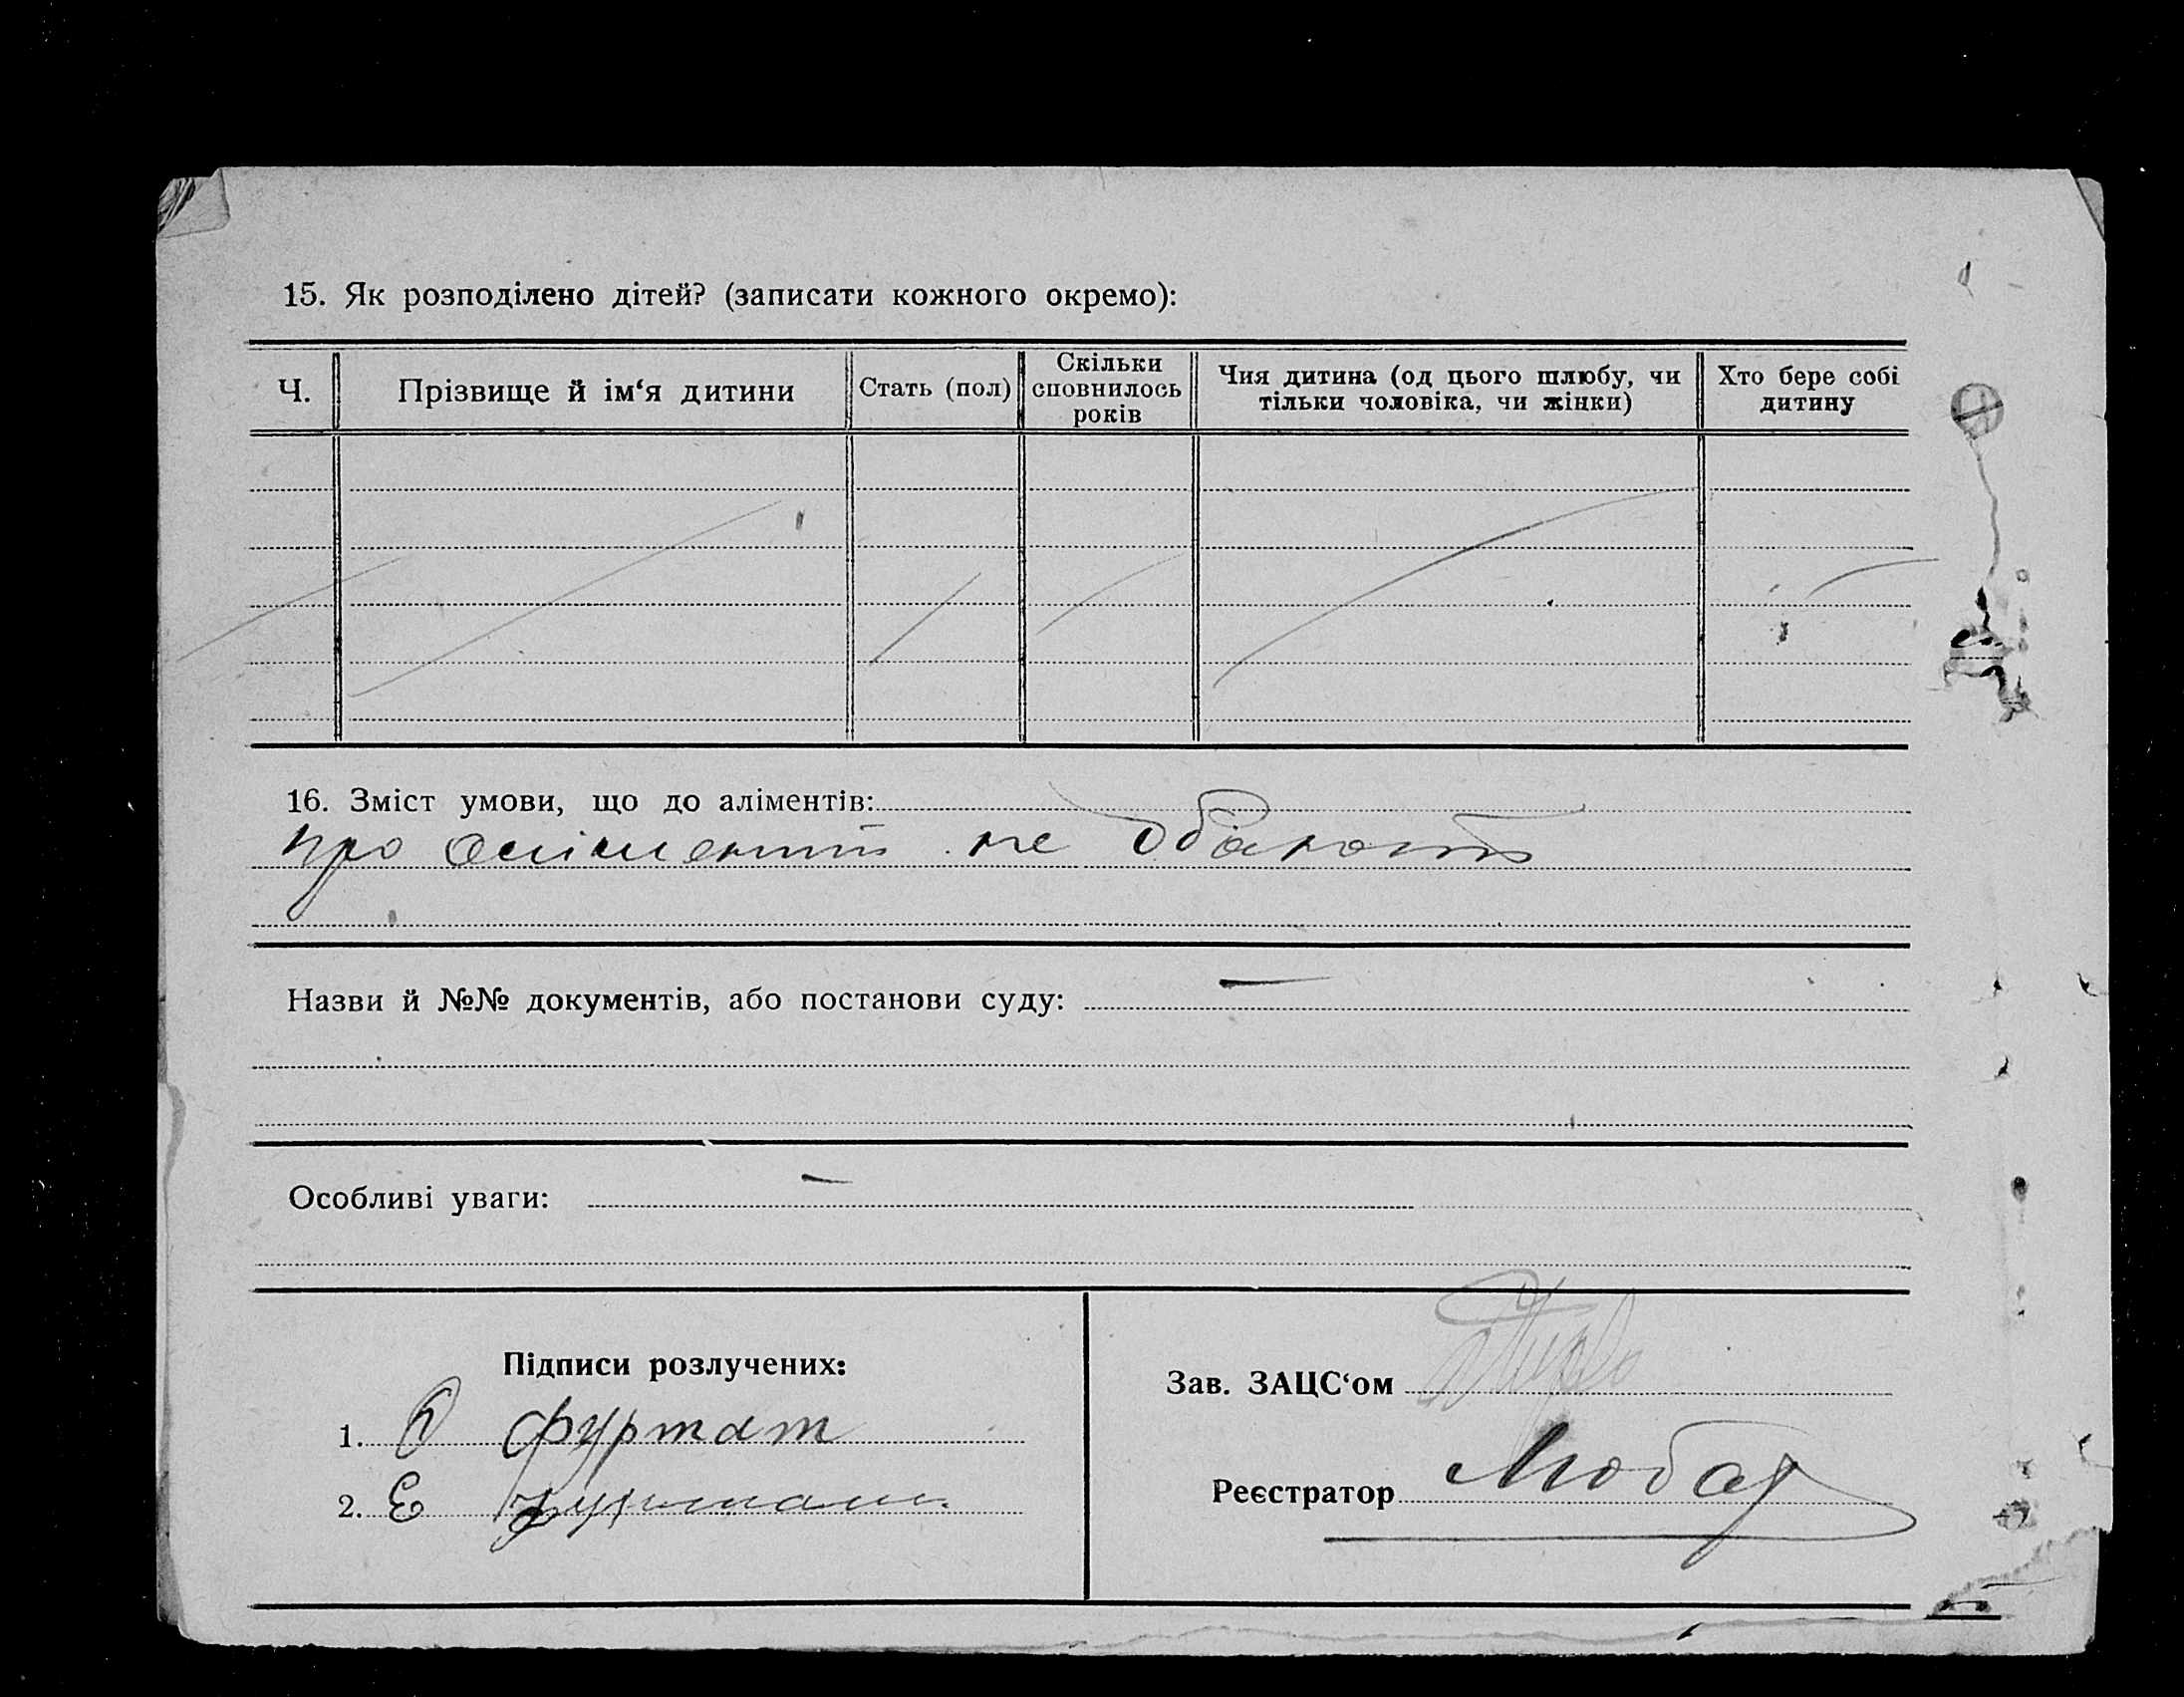 15. Як розподілено дітей? (записати кожного окремо):
Ч. Прізвище й ім‘я дитини Стать (пол) Скільки сповнилось років Чия дитина (од цього шлюбу, чи тільки чоловіка, чи жінки) Хто бере собі дитину
16. Зміст умови, що до аліментів:
про аліменти не
Назви й №№ документів, або постанови суду: —
Особливі уваги: —
Підписи розлучених:
1.
2. Е
Зав. ЗАЦС‘ом
Реєстратор Любар